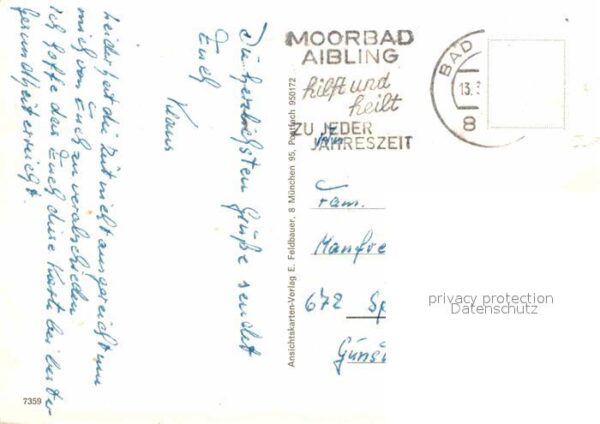 Leider hat die Zeit nicht ausgereicht um
mich von Euch zu verabschieden
ich hoffe das Euch diese Karte bei bester
Gesundheit erreicht.
Die herzlichsten Grüße sendet
Euch
Klaus
7359
Ansichtskarten-Verlag E. Feldbauer, 8 München 95, Postfach 950172
MOORBAD
AIBLING
hilft und
heilt
ZU JEDER
JAHRESZEIT
BAD
13.
8
Fam.
Manfre
672 Sp
Günst
privacy protection
Datenschutz